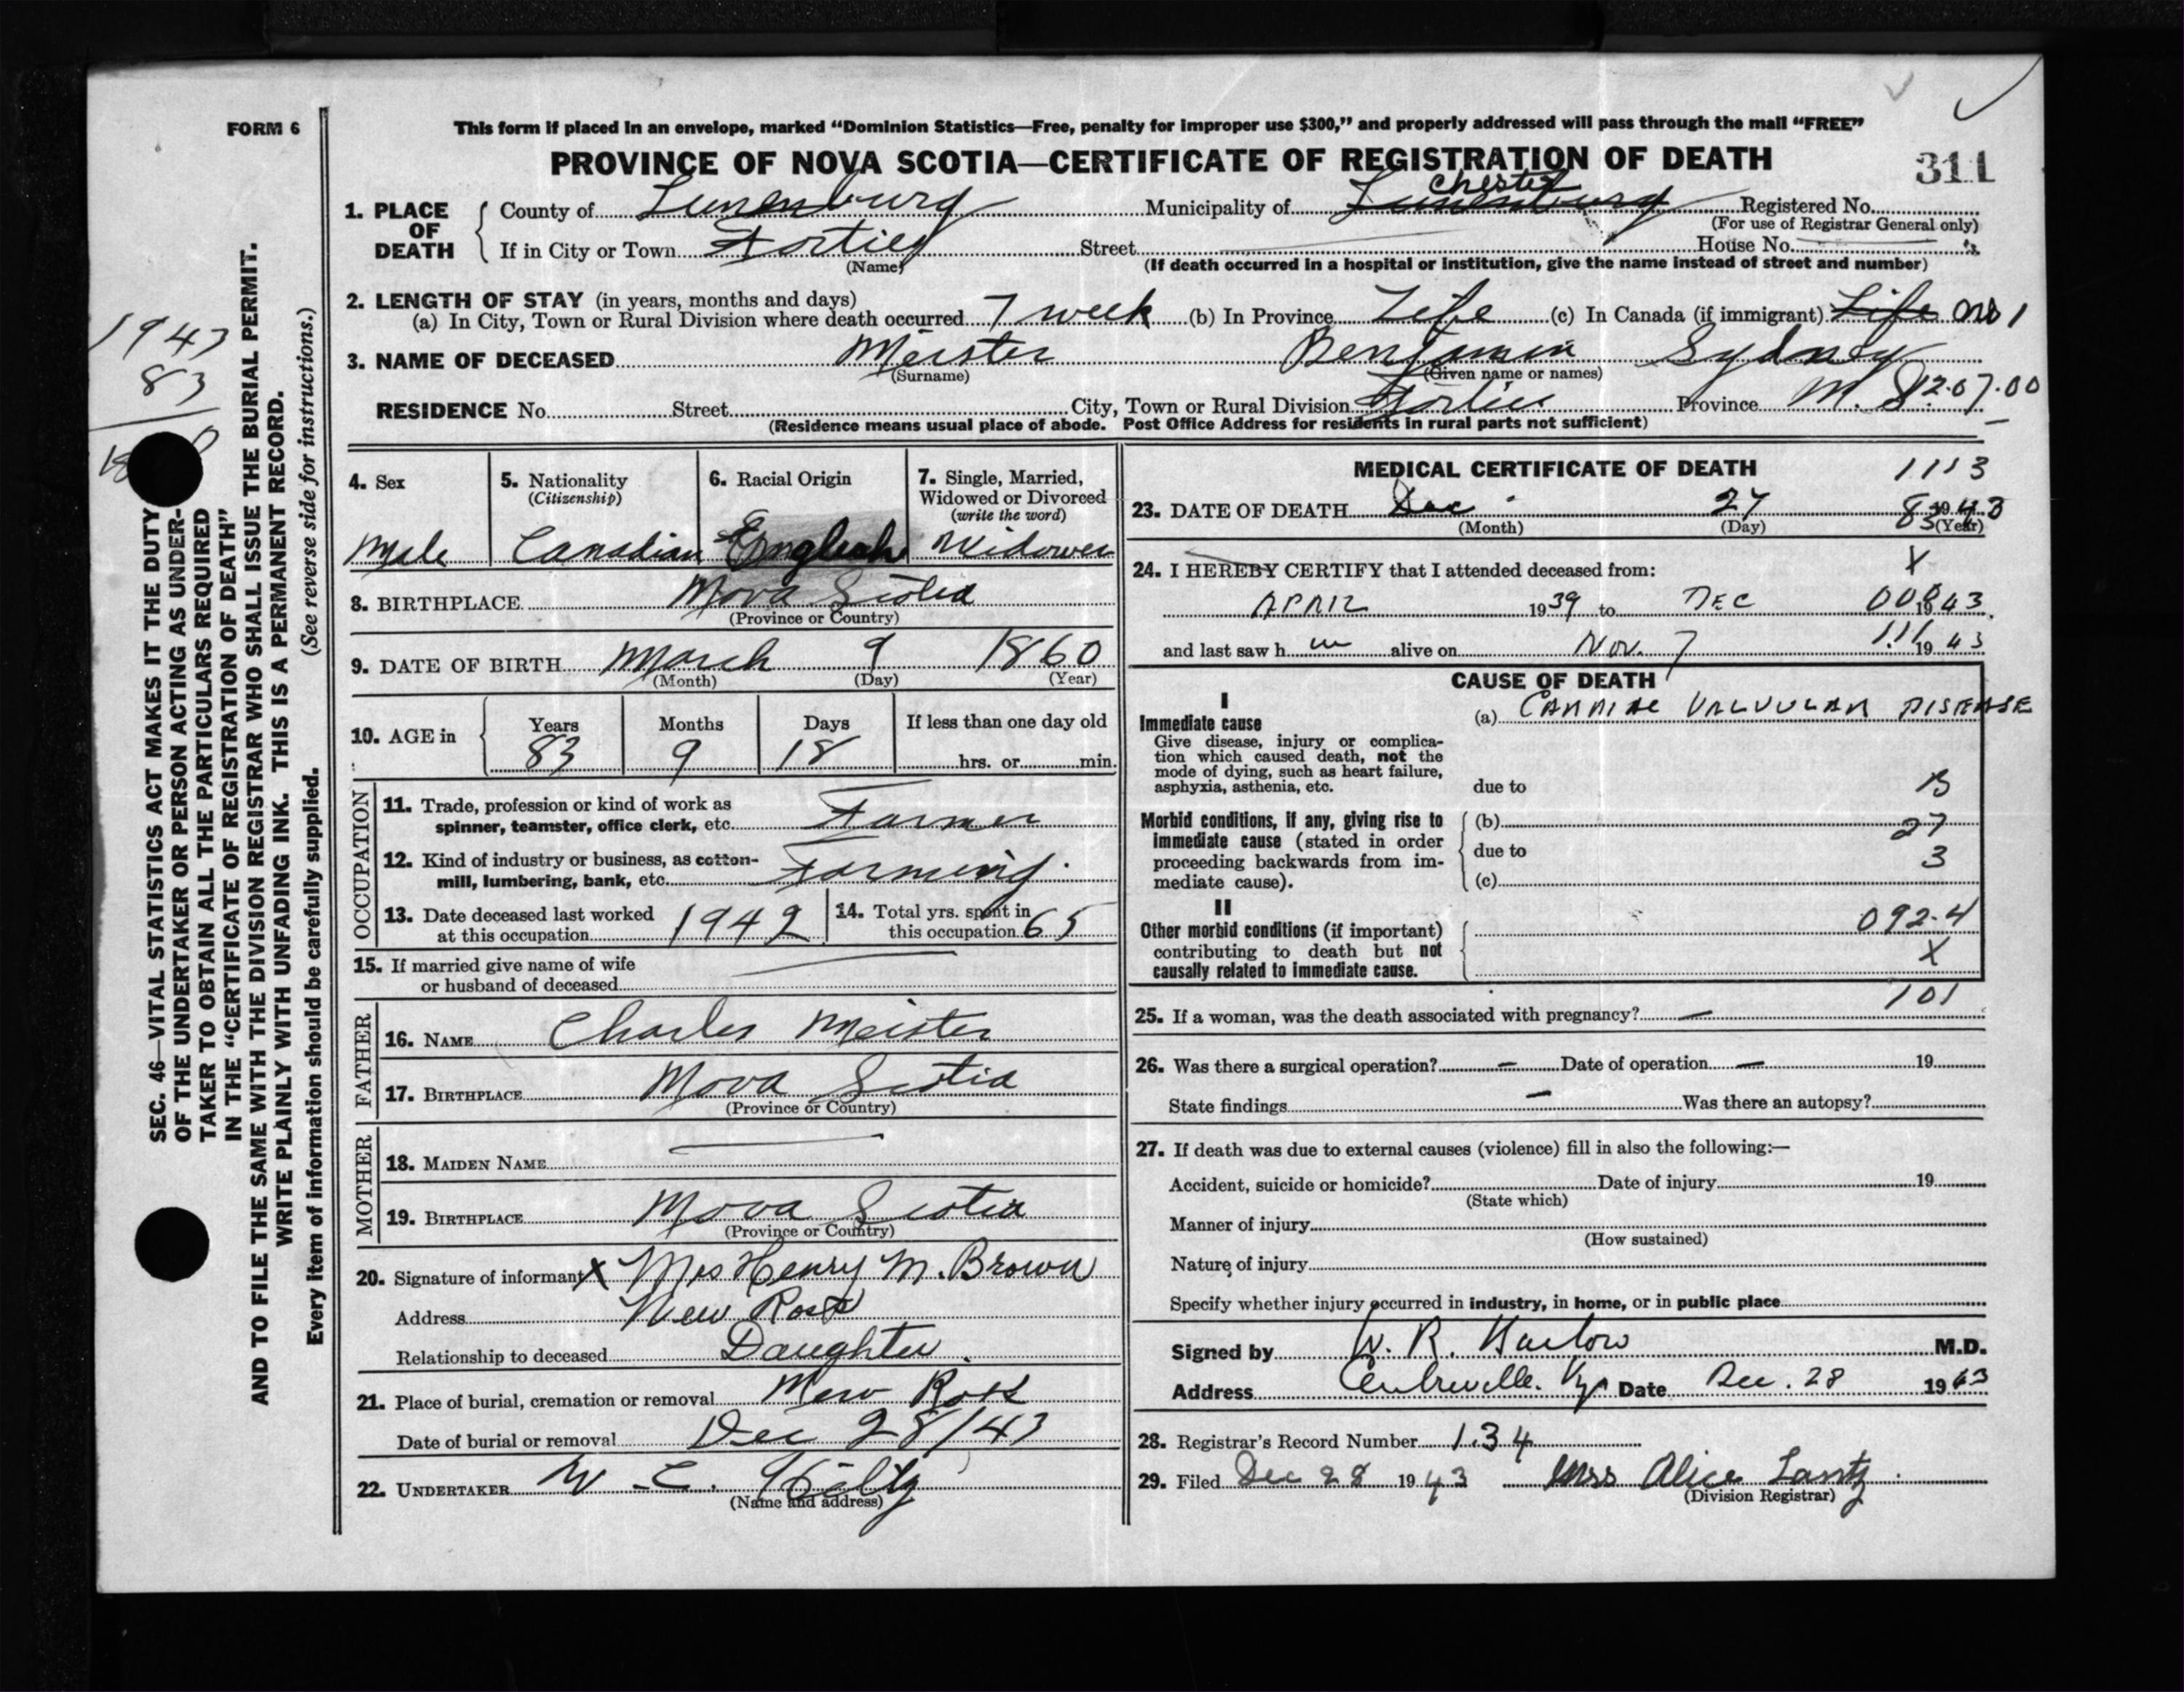 FORM 6
This form if placed in an envelope, marked “Dominion Statistics—Free, penalty for improper use $300,” and properly addressed will pass through the mail “FREE”
PROVINCE OF NOVA SCOTIA—CERTIFICATE OF REGISTRATION OF DEATH
311
1. PLACE OF DEATH
County of Lunenburg Municipality of Lunenburg Chester Registered No.
(For use of Registrar General only)
If in City or Town Forties Street House No.
(Name) (If death occurred in a hospital or institution, give the name instead of street and number)
2. LENGTH OF STAY (in years, months and days)
(a) In City, Town or Rural Division where death occurred 7 week (b) In Province Life (c) In Canada (if immigrant) Life
3. NAME OF DECEASED Meister Benjamin Sydney
(Surname) (Given name or names)
RESIDENCE No. Street City, Town or Rural Division Forties Province N. S 12.07.00
(Residence means usual place of abode. Post Office Address for residents in rural parts not sufficient)
4. Sex
Male
5. Nationality
(Citizenship)
Canadian
6. Racial Origin
English
7. Single, Married,
Widowed or Divorced
(write the word)
Widower
8. BIRTHPLACE Nova Scotia
(Province or Country)
9. DATE OF BIRTH March 9 1860
(Month) (Day) (Year)
10. AGE in
Years Months Days If less than one day old
83 9 18 hrs. or min.
OCCUPATION
11. Trade, profession or kind of work as
spinner, teamster, office clerk, etc. Farmer
12. Kind of industry or business, as cotton-
mill, lumbering, bank, etc. Farming
13. Date deceased last worked
at this occupation 1942
14. Total yrs. spent in
this occupation 65
15. If married give name of wife
or husband of deceased
FATHER
16. NAME Charles Meister
17. BIRTHPLACE Nova Scotia
(Province or Country)
MOTHER
18. MAIDEN NAME
19. BIRTHPLACE Nova Scotia
(Province or Country)
20. Signature of informant X Mrs Henry M. Brown
Address New Ross
Relationship to deceased Daughter
21. Place of burial, cremation or removal New Ross
Date of burial or removal Dec 28/43
22. UNDERTAKER W. C. Hiltz
(Name and address)
MEDICAL CERTIFICATE OF DEATH
1113
23. DATE OF DEATH Dec 27 1943
(Month) (Day) (Year)
83
X
24. I HEREBY CERTIFY that I attended deceased from:
APRIL 1939 to DEC 1943
and last saw h alive on Nov. 7 1943
CAUSE OF DEATH
I
Immediate cause
Give disease, injury or complica-
tion which caused death, not the
mode of dying, such as heart failure,
asphyxia, asthenia, etc.
(a) CARDIAC VALVULAR DISEASE
due to
Morbid conditions, if any, giving rise to
immediate cause (stated in order
proceeding backwards from im-
mediate cause).
(b)
27
due to
3
(c)
II
Other morbid conditions (if important)
contributing to death but not
causally related to immediate cause.
092.4
X
101
25. If a woman, was the death associated with pregnancy? —
26. Was there a surgical operation? — Date of operation — 19
State findings — Was there an autopsy?
27. If death was due to external causes (violence) fill in also the following:—
Accident, suicide or homicide? Date of injury 19
(State which)
Manner of injury
(How sustained)
Nature of injury
Specify whether injury occurred in industry, in home, or in public place
Signed by W. R. Barlow M.D.
Address Centreville Date Dec. 28 1943
28. Registrar's Record Number 134
29. Filed Dec 28 1943 Mrs Alice Lantz
(Division Registrar)
SEC. 46—VITAL STATISTICS ACT MAKES IT THE DUTY
OF THE UNDERTAKER OR PERSON ACTING AS UNDER-
TAKER TO OBTAIN ALL THE PARTICULARS REQUIRED
IN THE “CERTIFICATE OF REGISTRATION OF DEATH”
AND TO FILE THE SAME WITH THE DIVISION REGISTRAR WHO SHALL ISSUE THE BURIAL PERMIT.
WRITE PLAINLY WITH UNFADING INK. THIS IS A PERMANENT RECORD.
Every item of information should be carefully supplied. (See reverse side for instructions.)
1943
83